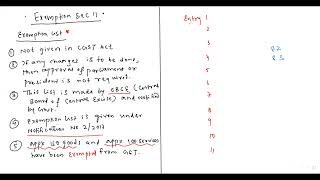 Exemption Sec 11
Exemption List *
① Not given in CGST Act
② If any changes is to be done,
then approval of parliament or
President is not required.
③ This list is made by CBSE (Central
Board of Central Excise) and notified
by Govt.
④ Exemption list is given under
Notification No 2/2017
⑤ Appx 150 Goods and Appx 100 Services
have been Exempted from GST.
Entry 1
2
3
4
5
6
7
8
9
10
11
82
83